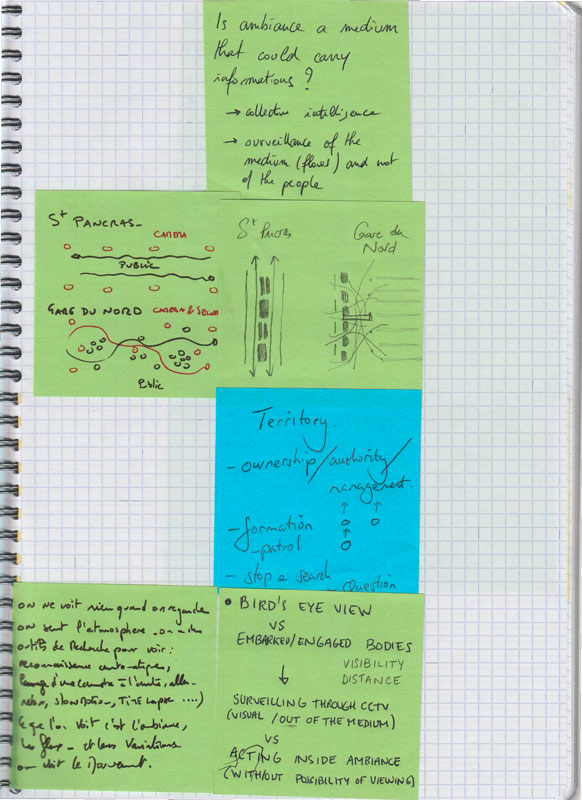 Is ambiance a medium
that could carry
informations ?
→ collective intelligence
→ surveillance of the
medium (flows) and not
of the people
St PANCRAS-
CAMERA
PUBLIC
GARE DU NORD CAMERA &
Public
St
Gare du
Nord
Territory
- ownership/authority/
management.
- formation
- patrol
- stop & search
- Question
on ne voit rien quand on regarde
on sent l'atmosphère - on a des
outils de Recherche pour voir :
reconnaissance automatique,
Passage d'une caméra à l'autre, aller-
retour, slow motion, Time lapse ....)
Ce que l'on voit c'est l'ambiance,
les flux - et leurs variations
on voit le Mouvement.
• BIRD'S EYE VIEW
VS
EMBARKED/ENGAGED BODIES
VISIBILITY
DISTANCE
↓
SURVEILLING THROUGH CCTV
(VISUAL /OUT OF THE MEDIUM)
VS
ACTING INSIDE AMBIANCE
(WITHOUT POSSIBILITY OF VIEWING)